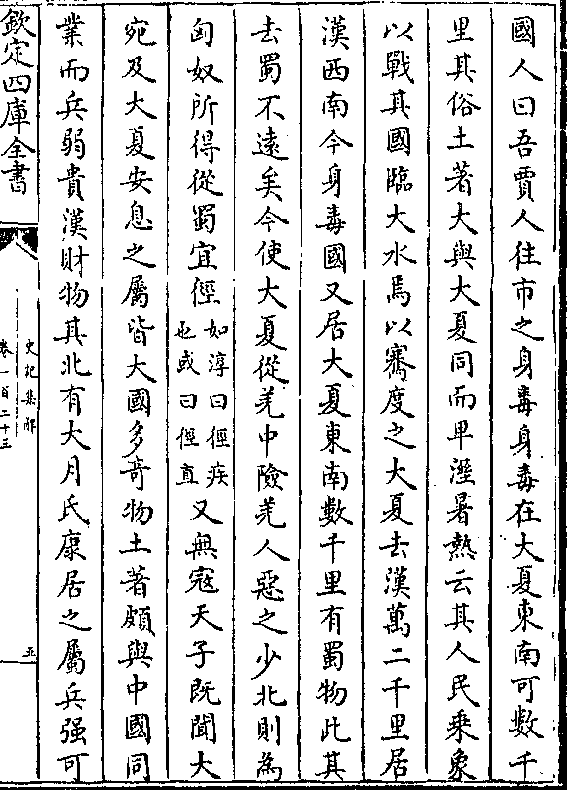 國人曰吾賈人往市之身毒身毒在大夏東南可數千
里其俗土著大與大夏同而卑溼暑熱云其人民乗象
以戰其國臨大水焉以騫度之大夏去漢萬二千里居
漢西南今身毒國又居大夏東南數千里有蜀物此其
去蜀不遠矣今使大夏從羌中險羌人惡之少北則為
匈奴所得從蜀宜徑如淳曰徑疾也或曰徑直又無宼天子既聞大
宛及大夏安息之屬皆大國多竒物土著頗與中國同
業而兵弱貴漢財物其北有大月氏康居之屬兵强可
欽定四庫全書
史記集解
卷一百二十三
五